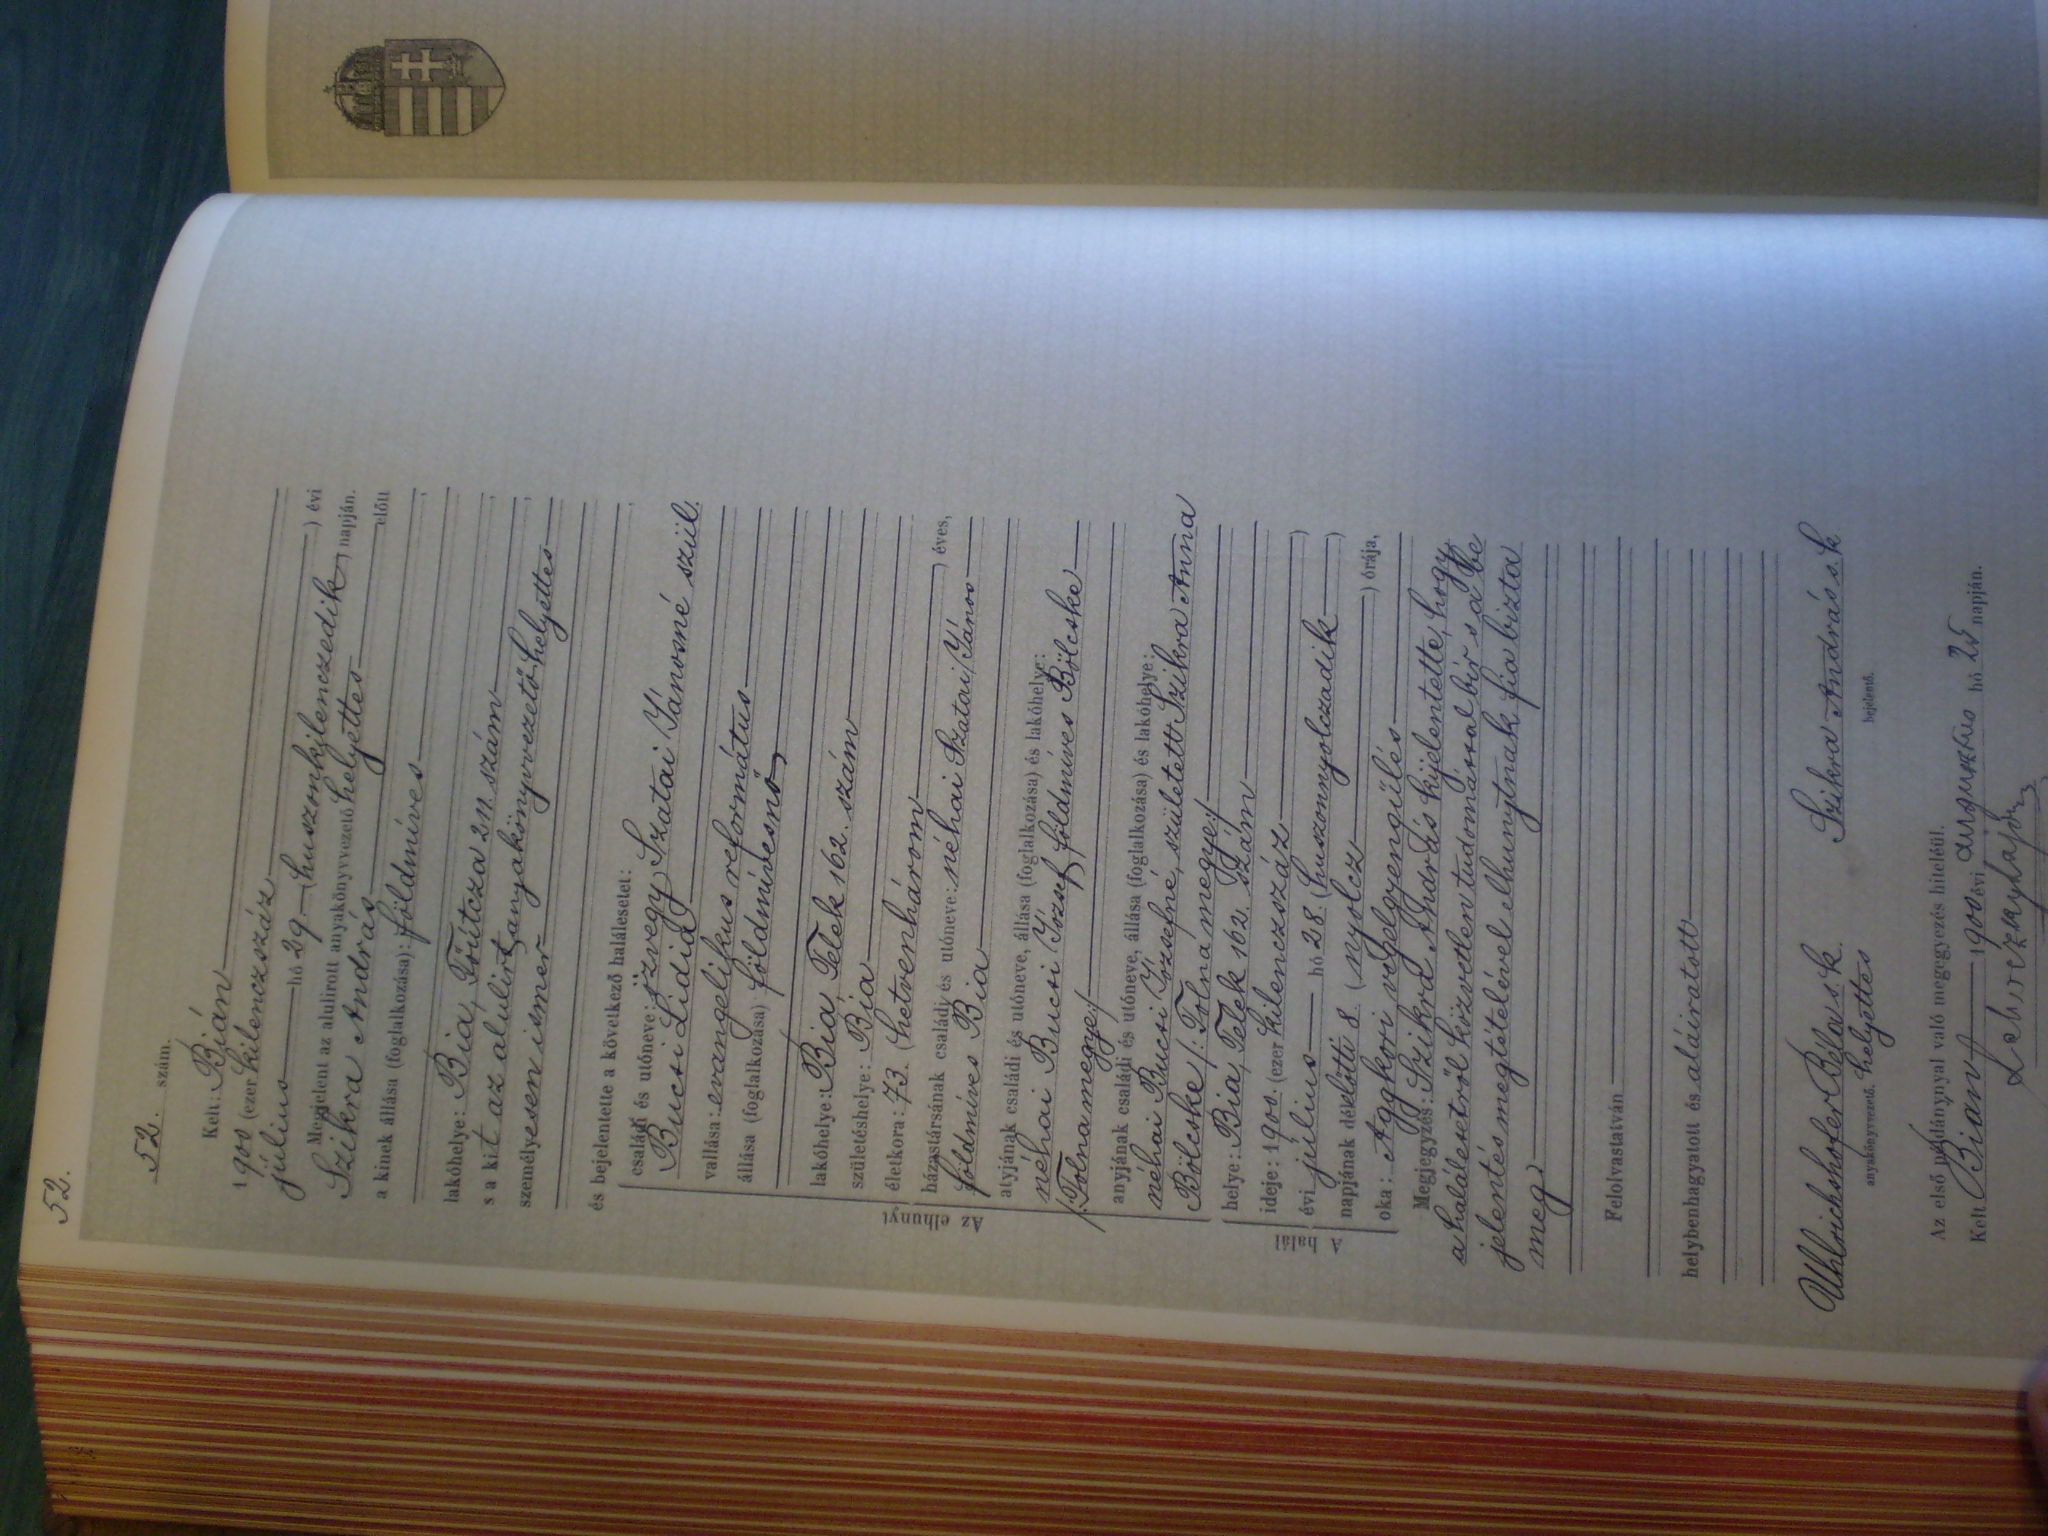 52.
52. szám.
Kelt: Bián
1900 (ezer kilenczszáz ) évi
július hó 29. (huszonkilenczedik ) napján.
Megjelent az alulirott anyakönyvvezető helyettes előtt
Szikra András
a kinek állása (foglalkozása): földmíves ,
lakóhelye: Bia, Főútcza 211. szám ,
s a kit az alulirt anyakönyvvezetőhelyettes ,
személyesen ismer
és bejelentette a következő halálesetet:
családi és utóneve: özvegy Szatai Jánosné szül.
Bucsi Lidia
vallása: evangelikus református
állása (foglalkozása) földmívesnő
lakóhelye: Bia, Telek 162. szám
születéshelye: Bia
életkora: 73. (hetvenhárom ) éves,
házastársának családi és utóneve: néhai Szatai János
földmíves Bia
Az elhunyt
atyjának családi és utóneve, állása (foglalkozása) és lakóhelye:
néhai Bucsi József földmíves Bölcske
/:Tolnamegye:/
anyjának családi és utóneve, állása (foglalkozása) és lakóhelye:
néhai Bucsi Józsefné, született Szikra Anna
Bölcske /:Tolna megye:/
helye: Bia, Telek 162. szám
ideje: 1900. (ezer kilenczszáz )
évi július hó 28. (huszonnyolczadik )
A halál
napjának délelőtti 8. (nyolcz ) órája,
oka: Aggkori végelgyengülés
Megjegyzés: Szikra András kijelentette, hogy
a halálesetről közvetlen tudomással bír s a be
jelentés megtételével elhunytnak fia bizta
meg
Felolvastatván
helybenhagyatott és aláiratott
Uhlrichshofer Béla s. k. Szikra András s. k.
anyakönyvvezető. helyettes bejelentő.
Az első példánynyal való megegyezés hiteléül.
Kelt Bian 1900 évi augusztus hó 25 napján.